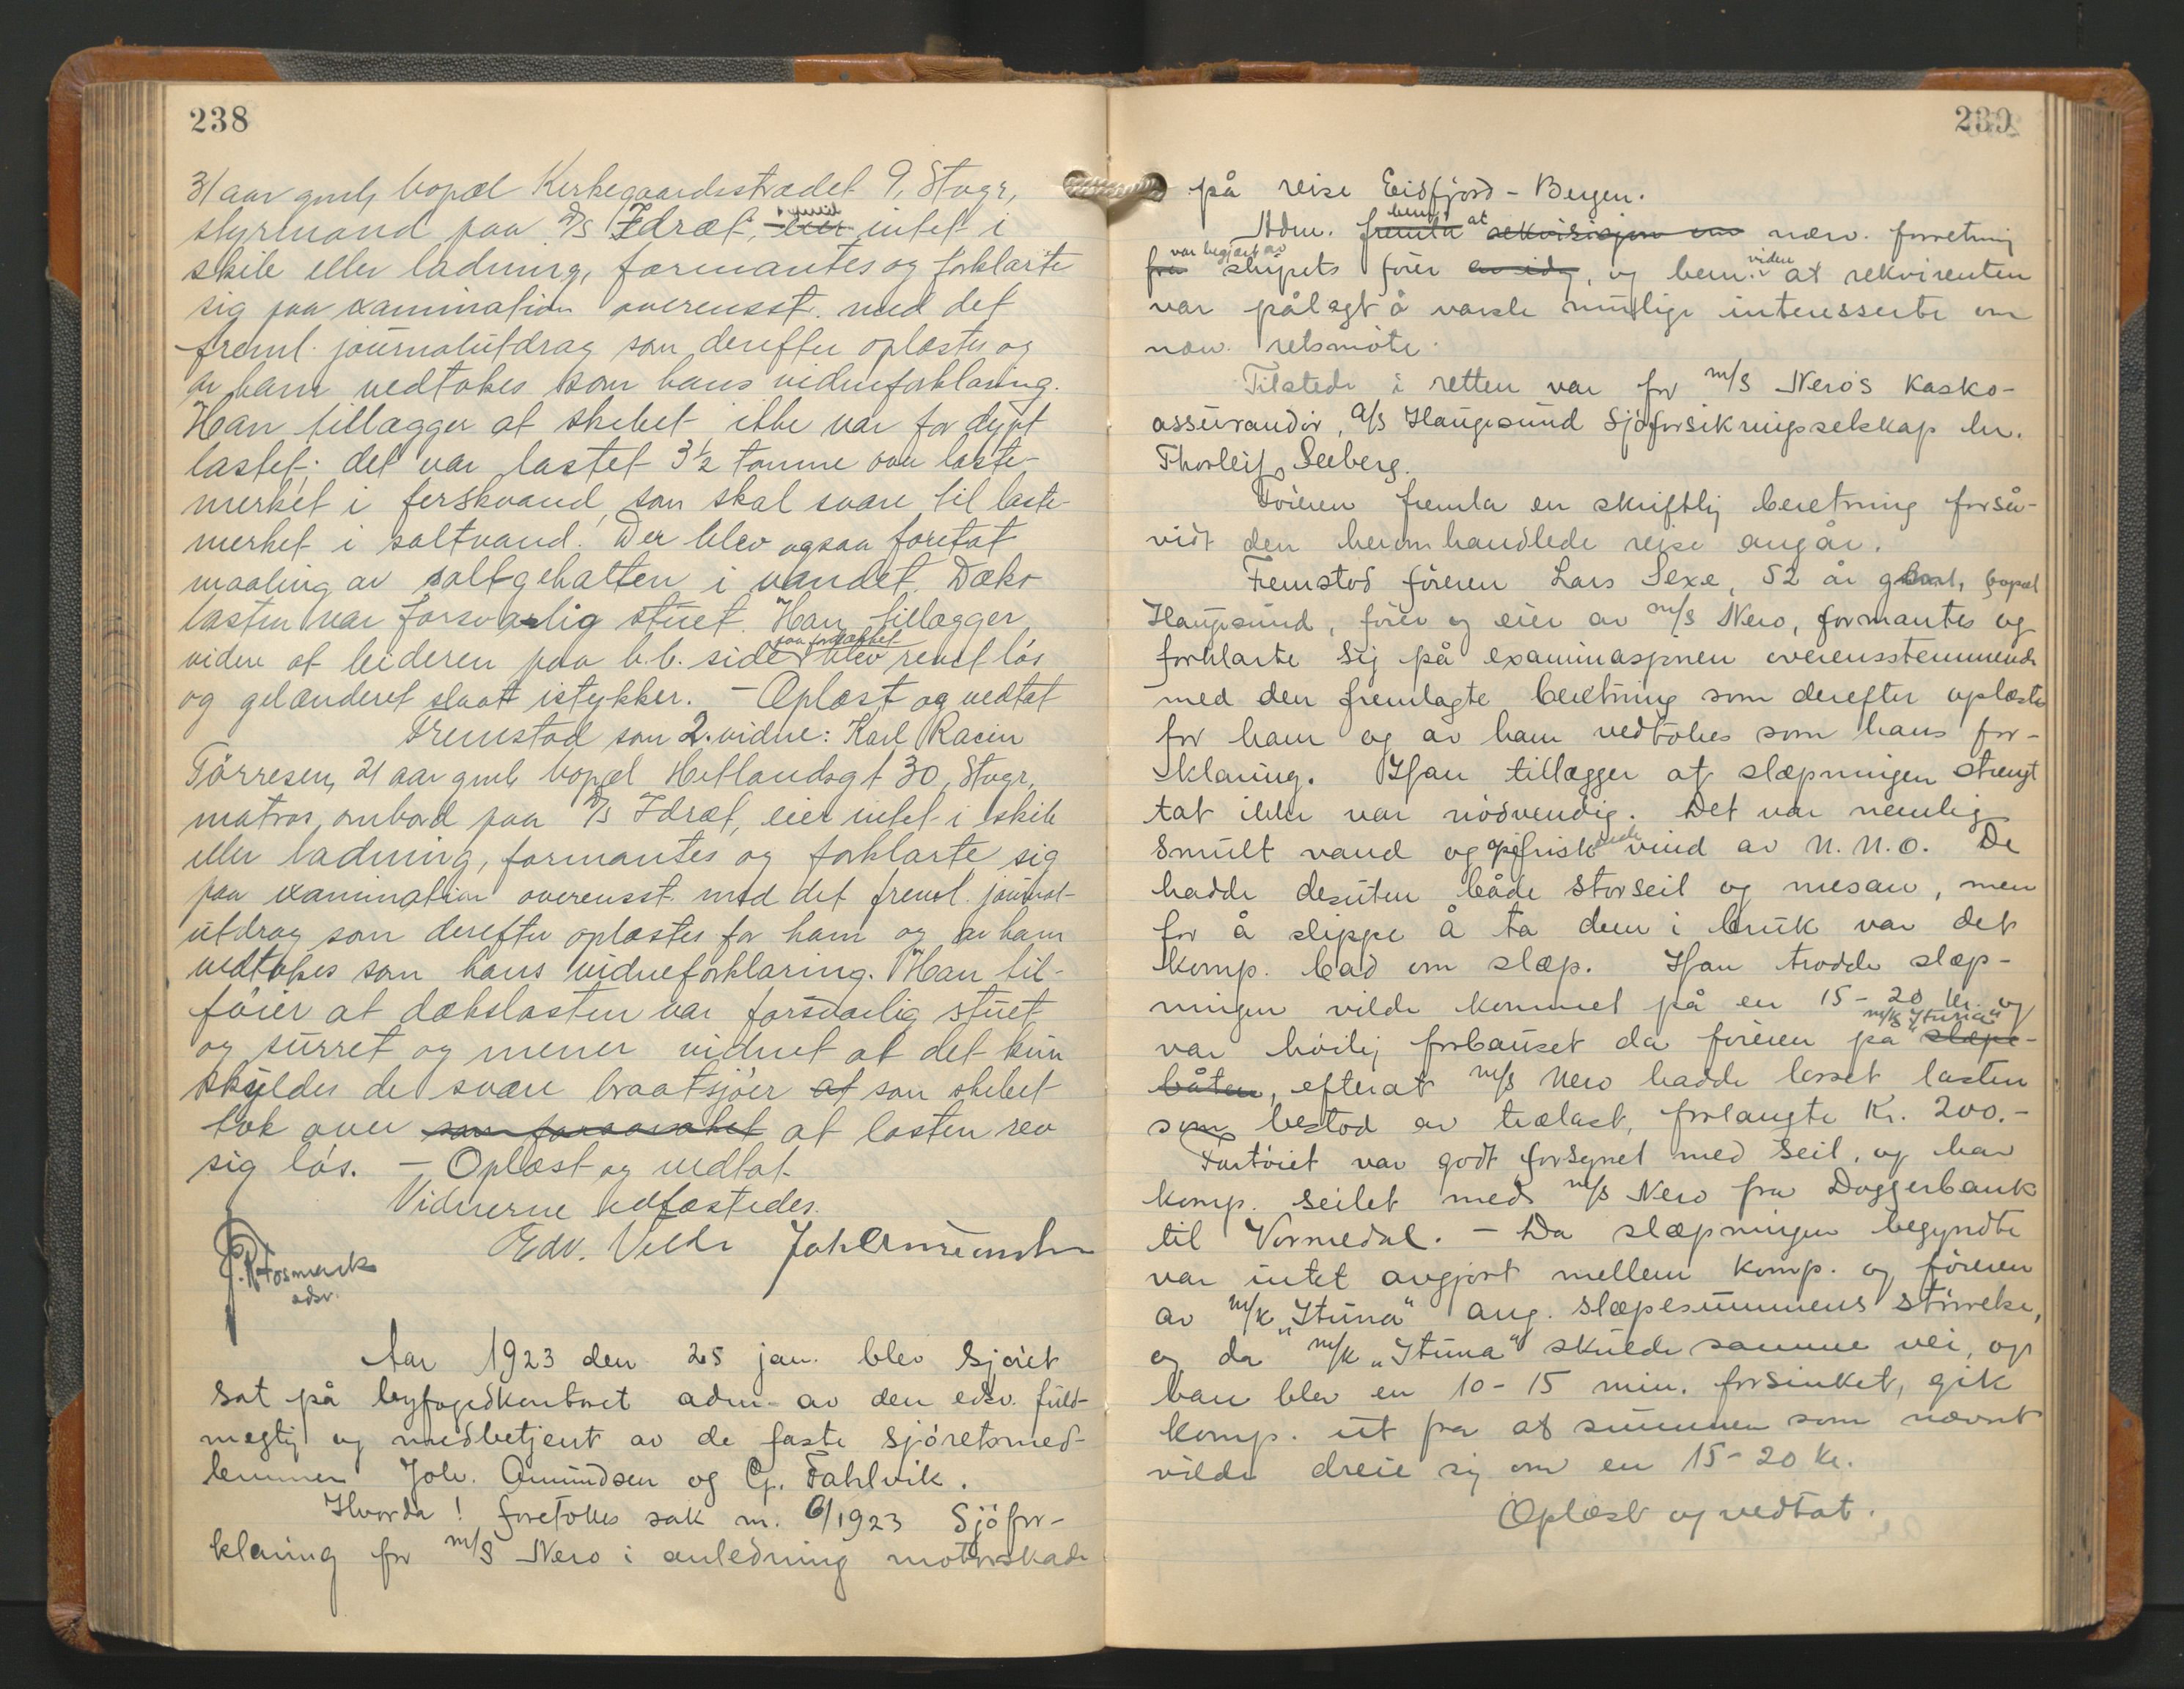 238
31 aar gml, bopæl Kirkegaardsstrædet 9, Stvgr,
styrmand paa D/S Idræt, eier intet i
skib eller ladning, formantes og forklarte
sig paa examination overensst. med det
freml. journalutdrag som derefter oplæstes og
av ham vedtokes som hans vidneforklaring.
Han tillægger at skibet ikke var for dypt
lastet; det var lastet 3½ tomme over laste-
merket i ferskvand, som skal svare til laste-
merket i saltvand. Der blev ogsaa foretat
maaling av saltgehalten i vandet. Dæks-
lasten var forsvarlig stuet. Han tillægger
videre at leideren paa b.b. side paa fordækket blev revet løs
og gelænderet slaat istykker. – Oplæst og vedtat
Fremstod som 2. vidne: Karl Racin
Tørresen, 21 aar gml, bopæl Hetlandsgt 30, Stvgr,
matros ombord paa D/S Idræt, eier intet i skib
eller ladning, formantes og forklarte sig
paa examination overensst. med det freml. journal-
utdrag som derefter oplæstes for ham og av ham
vedtokes som hans vidneforklaring. Han til-
føier at dækslasten var forsvarlig stuet
og surret og mener vidnet at det kun
skyldes de svære braatsjøer at som skibet
tok over som foraarsaket at lasten rev
sig løs. – Oplæst og vedtat
Vidnerne edfæstedes.
Edv. Velde Joh Amundsen
P. R. Fosmark
adv.
Aar 1923 den 25 jan. blev sjøret
sat på byfogedkontoret adm. av den edsv. fuld-
mægtig og medbetjent av de faste sjøretsmed-
lemmer Joh. Amundsen og G. Fahlvik.
Hvorda! foretokes sak nr. 6/1923 Sjøfor-
klaring for m/s Nero i anledning motorskade
239
på reise Eidfjord - Bergen.
Adm. fremla bem. at rekvisisjon om nærv. forretning
fra var begjært av skipets fører, og bem. videre at rekvirenten
var pålagt å varsle mulige interesserte om
nærv. retsmøte.
Tilstede i retten var for m/s Nero's kasko-
assurandør, A/S Haugesund Sjøforsikringsselskap hr.
Thorleif Seeberg.
Føreren fremla en skriftlig beretning forså-
vidt den heromhandlede reise angår.
Fremstod føreren Lars Sexe, 52 år gammel, bopæl
Haugesund, fører og eier av m/s Nero, formantes og
forklarte sig på examinasjonen overensstemmende
med den fremlagte beretning som derefter oplæstes
for ham og av ham vedtokes som hans for-
klaring. Han tillægger at slæpningen strengt
tat ikke var nødvendig. Det var nemlig
smult vand og opfriskende vind av N.N.O. De
hadde desuten både storseil og mesan, men
for å slippe å ta dem i bruk var det
komp. bad om slæp. Han trodde slæp-
ningen vilde kommet på en 15 - 20 kr. og
var høilig forbauset da føreren på m/k "Ituna" slæpe-
båten, efterat m/s Nero hadde losset lasten
som bestod av trælast, forlangte Kr. 200.-
Fartøiet var godt forsynet med seil, og har
komp. seilet med m/s Nero fra Doggerbank
til Vormedal. - Da slæpningen begyndte
var intet avgjort mellem komp. og føreren
av m/k "Ituna" ang. slæpesummens størrelse,
og da m/k "Ituna" skulde samme vei, og
bare blev en 10 - 15 min. forsinket, gik
komp. ut fra at summen som nævnt
vilde dreie sig om en 15 - 20 kr.
Oplæst og vedtat.